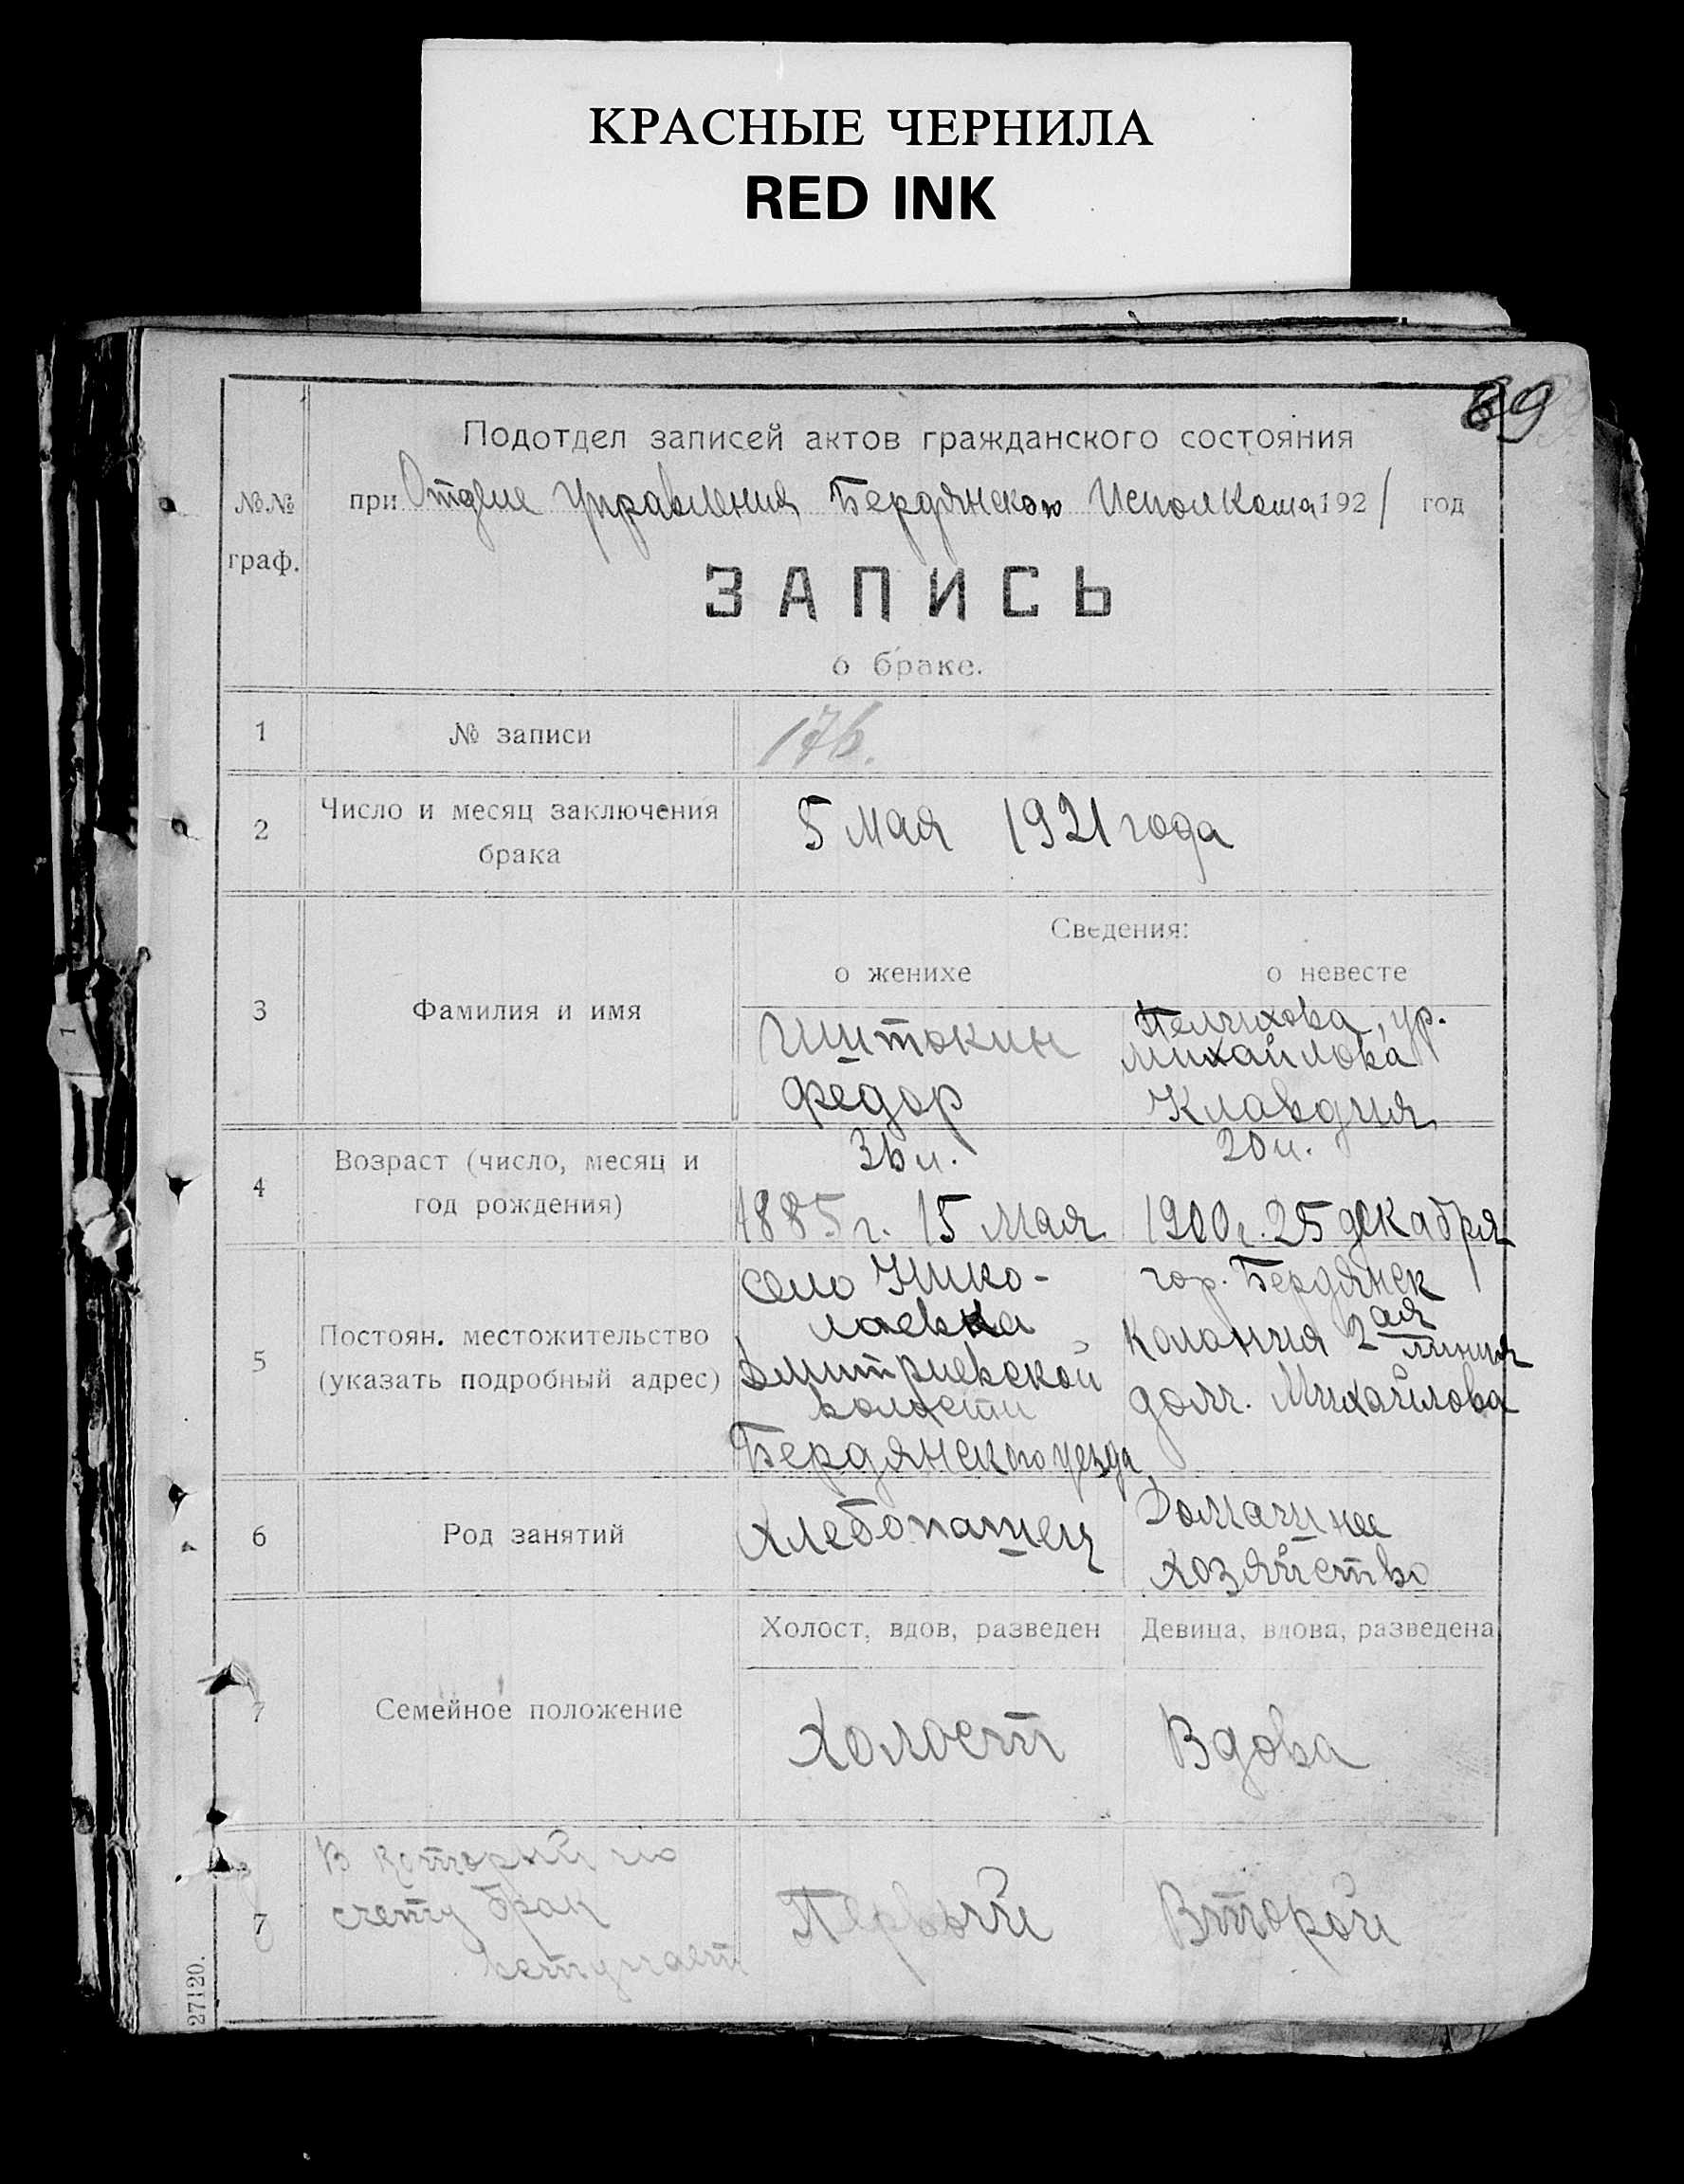 КРАСНЫЕ ЧЕРНИЛА
RED INK
89
Подотдел записей актов гражданского состояния
№№ граф.
при Отделе Управления Бердянского Исполкома 1921 год
ЗАПИСЬ
о браке.
1 № записи 176.
2 Число и месяц заключения брака
5 мая 1921 года
Сведения:
о женихе о невесте
3 Фамилия и имя
Иштокин
Федор
ур.
Михайлова
Клавдия
4 Возраст (число, месяц и
год рождения)
36 л.
1885 г. 15 мая
20 л.
1900 г. 25 декабря
5 Постоян. местожительство
(указать подробный адрес)
село Нико-
лаевка
Дмитриевской
волости
Бердянского уезда
гор. Бердянск
Колония 2 ая
линия
дом. Михайлова
6 Род занятий
Хлебопашец
Домашнее
хозяйство
7 Семейное положение
Холост, вдов, разведен
Девица, вдова, разведена
Холост
Вдова
7 В который по
счету брак
вступает
Первый
Второй
27120.
1